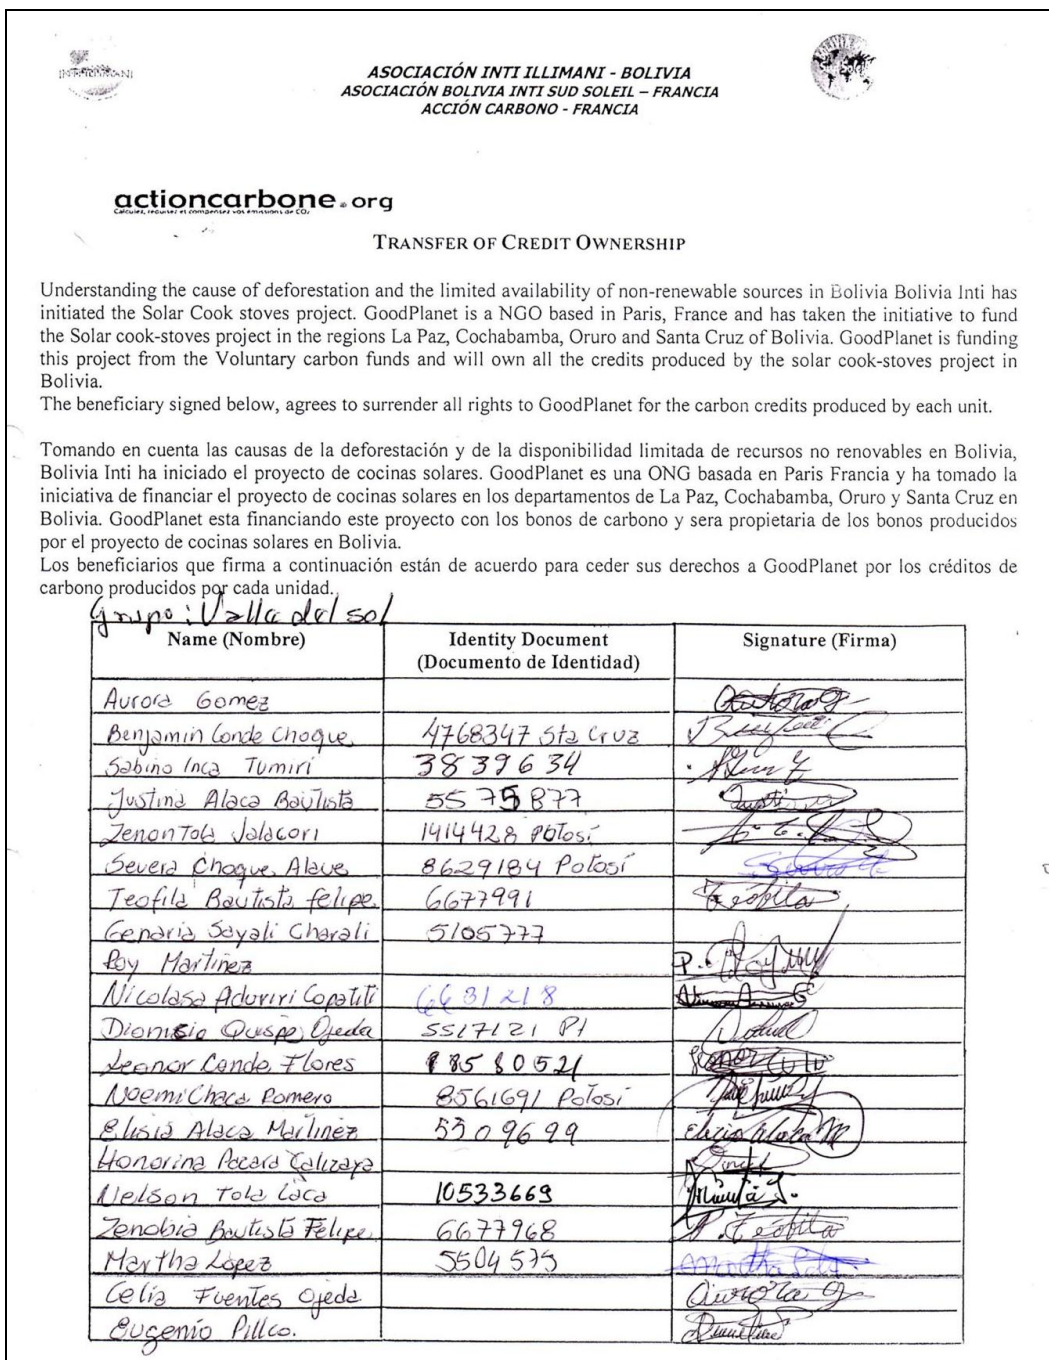 INTI ILLIMANI
ASOCIACIÓN INTI ILLIMANI - BOLIVIA
ASOCIACIÓN BOLIVIA INTI SUD SOLEIL – FRANCIA
ACCIÓN CARBONO - FRANCIA
actioncarbone.org
Calculez, réduisez et compensez vos émissions de CO₂
TRANSFER OF CREDIT OWNERSHIP
Understanding the cause of deforestation and the limited availability of non-renewable sources in Bolivia Bolivia Inti has
initiated the Solar Cook stoves project. GoodPlanet is a NGO based in Paris, France and has taken the initiative to fund
the Solar cook-stoves project in the regions La Paz, Cochabamba, Oruro and Santa Cruz of Bolivia. GoodPlanet is funding
this project from the Voluntary carbon funds and will own all the credits produced by the solar cook-stoves project in
Bolivia.
The beneficiary signed below, agrees to surrender all rights to GoodPlanet for the carbon credits produced by each unit.
Tomando en cuenta las causas de la deforestación y de la disponibilidad limitada de recursos no renovables en Bolivia,
Bolivia Inti ha iniciado el proyecto de cocinas solares. GoodPlanet es una ONG basada en Paris Francia y ha tomado la
iniciativa de financiar el proyecto de cocinas solares en los departamentos de La Paz, Cochabamba, Oruro y Santa Cruz en
Bolivia. GoodPlanet esta financiando este proyecto con los bonos de carbono y sera propietaria de los bonos producidos
por el proyecto de cocinas solares en Bolivia.
Los beneficiarios que firma a continuación están de acuerdo para ceder sus derechos a GoodPlanet por los créditos de
carbono producidos por cada unidad.
Grupo: Valle del sol
Name (Nombre) Identity Document Signature (Firma)
(Documento de Identidad)
Aurora Gomez Aurora g
Benjamin Conde Choque 4768347 Sta Cruz
Sabino Inca Tumiri 3839634
Justina Alaca Bautista 5575877
Zenon Tola Jalacori 1414428 Potosí
Severa Choque Alave 8629184 Potosí
Teofila Bautista felipe 6677991 Teófila
Genaria Sayali Charali 5105777
Roy Martinez P.
Nicolasa Aduviri Copatiti 6631218
Dionisio Quispe Ojeda 5517121 Pt
Leonor Conde Flores 8580521
Noemi Chaca Romero 8561691 Potosí
Elisia Alaca Martinez 5509699 Elicia Alaca M
Honorina Pacara Calizaya
Nelson Tola Laca 10533669
Zenobia Bautista Felipe 6677968 P. Teófila
Martha Lopez 5504575 Martha
Celia Fuentes Ojeda Aurora g
Eugenio Pillco.